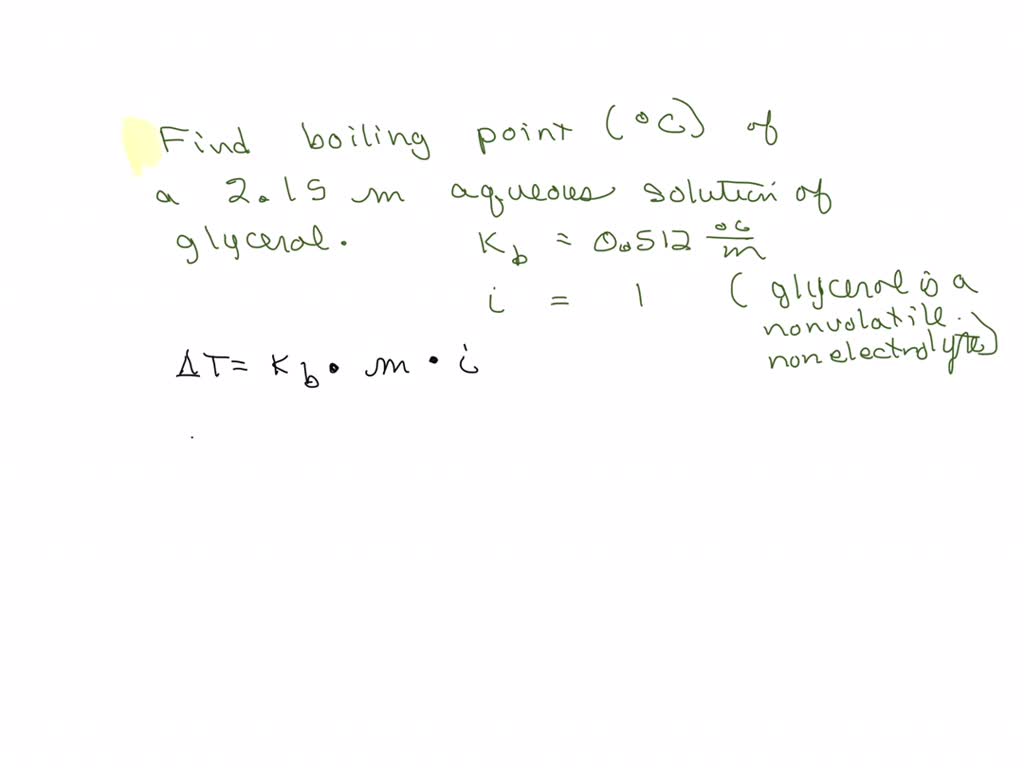 Find boiling point (°C) of
a 2.15 m aqueous solution of
glyceral. Kb = 0.512 °C/m
i = 1 (glyceral is a
nonvolatile.
nonelectrolyte)
ΔT = Kb • m • i